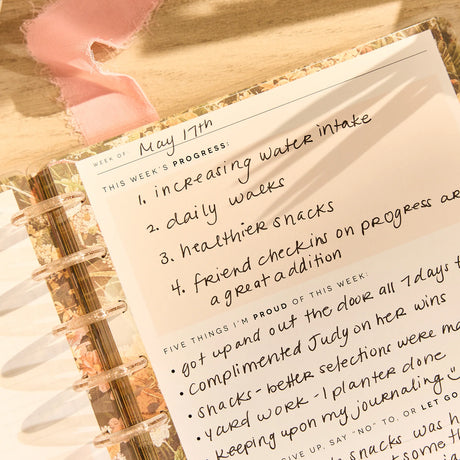 WEEK OF May 17th
THIS WEEK'S PROGRESS:
1. increasing water intake
2. daily walks
3. healthier snacks
4. friend checkins on progress
a great addition
FIVE THINGS I'M PROUD OF THIS WEEK:
• got up and out the door all 7 days
• complimented Judy on her wins
• snacks - better selections were
• yard work - 1 planter done
• keeping upon my journaling
GIVE UP, SAY "NO" TO, OR LET GO
snacks was